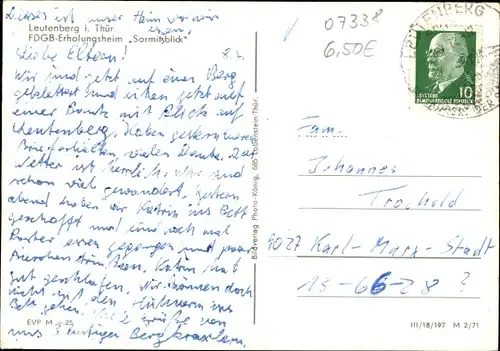 Dieses ist unser Heim wo wir
essen!
Leutenberg i. Thür.
FDGB-Erholungsheim „Sormitzblick“
Liebe Eltern!
Wir sind jetzt auf einen Berg
geklettert und sitzen jetzt auf
einer Bank mit Blick auf
Leutenberg. Haben gestern euren
Brief erhalten, vielen Dank. Das
Wetter ist herrlich, wir sind
schon viel gewandert. Gestern
abend haben wir Katrin ins Bett
geschafft und sind noch mal
essen gegangen und paar
Bierchen trinken. Katrin hat
gut geschlafen. Wir können doch
nicht mit den Hühnern ins
Bett gehen. Viele Grüße von
uns 3 lustigen Bergkraxlern.
EVP M -,25
Bildverlag Photo-König, 685 Lobenstein/Thür.
07338
6,50E
LEUTENBERG
DEUTSCHE
DEMOKRATISCHE REPUBLIK
10
Fam.
Johannes
Trochold
9027 Karl-Marx-Stadt
13-66-28
III/18/197 M 2/71